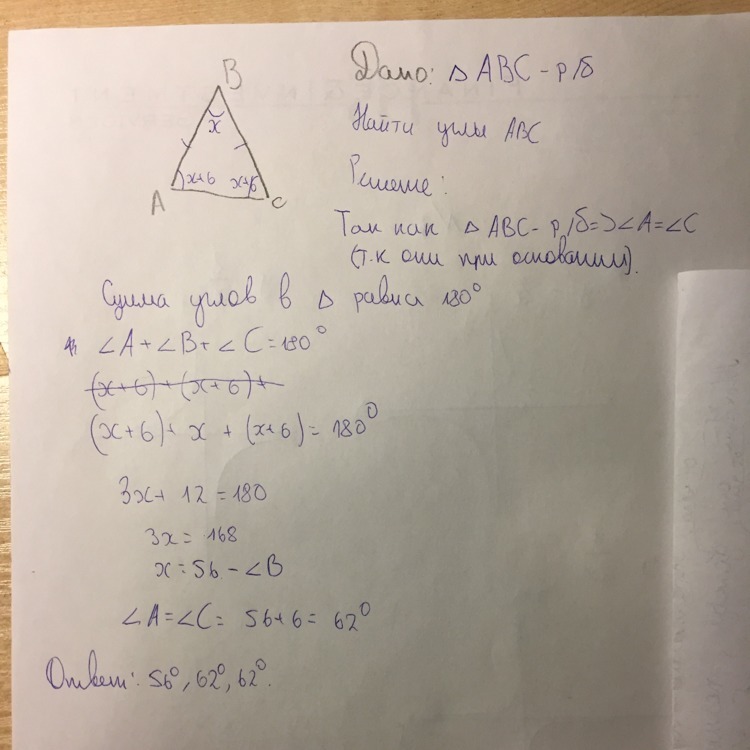 B
x
x+6
x+6
A
C
Дано: △ ABC - р/б
Найти углы ABC
Решение:
Так как △ ABC - р/б => ∠A = ∠C
(т.к они при основании).
Сумма углов в △ равна 180°
∠A + ∠B + ∠C = 180°
(x+6) + (x+6) +
(x+6) + x + (x+6) = 180°
3x + 12 = 180
3x = 168
x = 56 - ∠B
∠A = ∠C = 56+6 = 62°
Ответ: 56°, 62°, 62°.